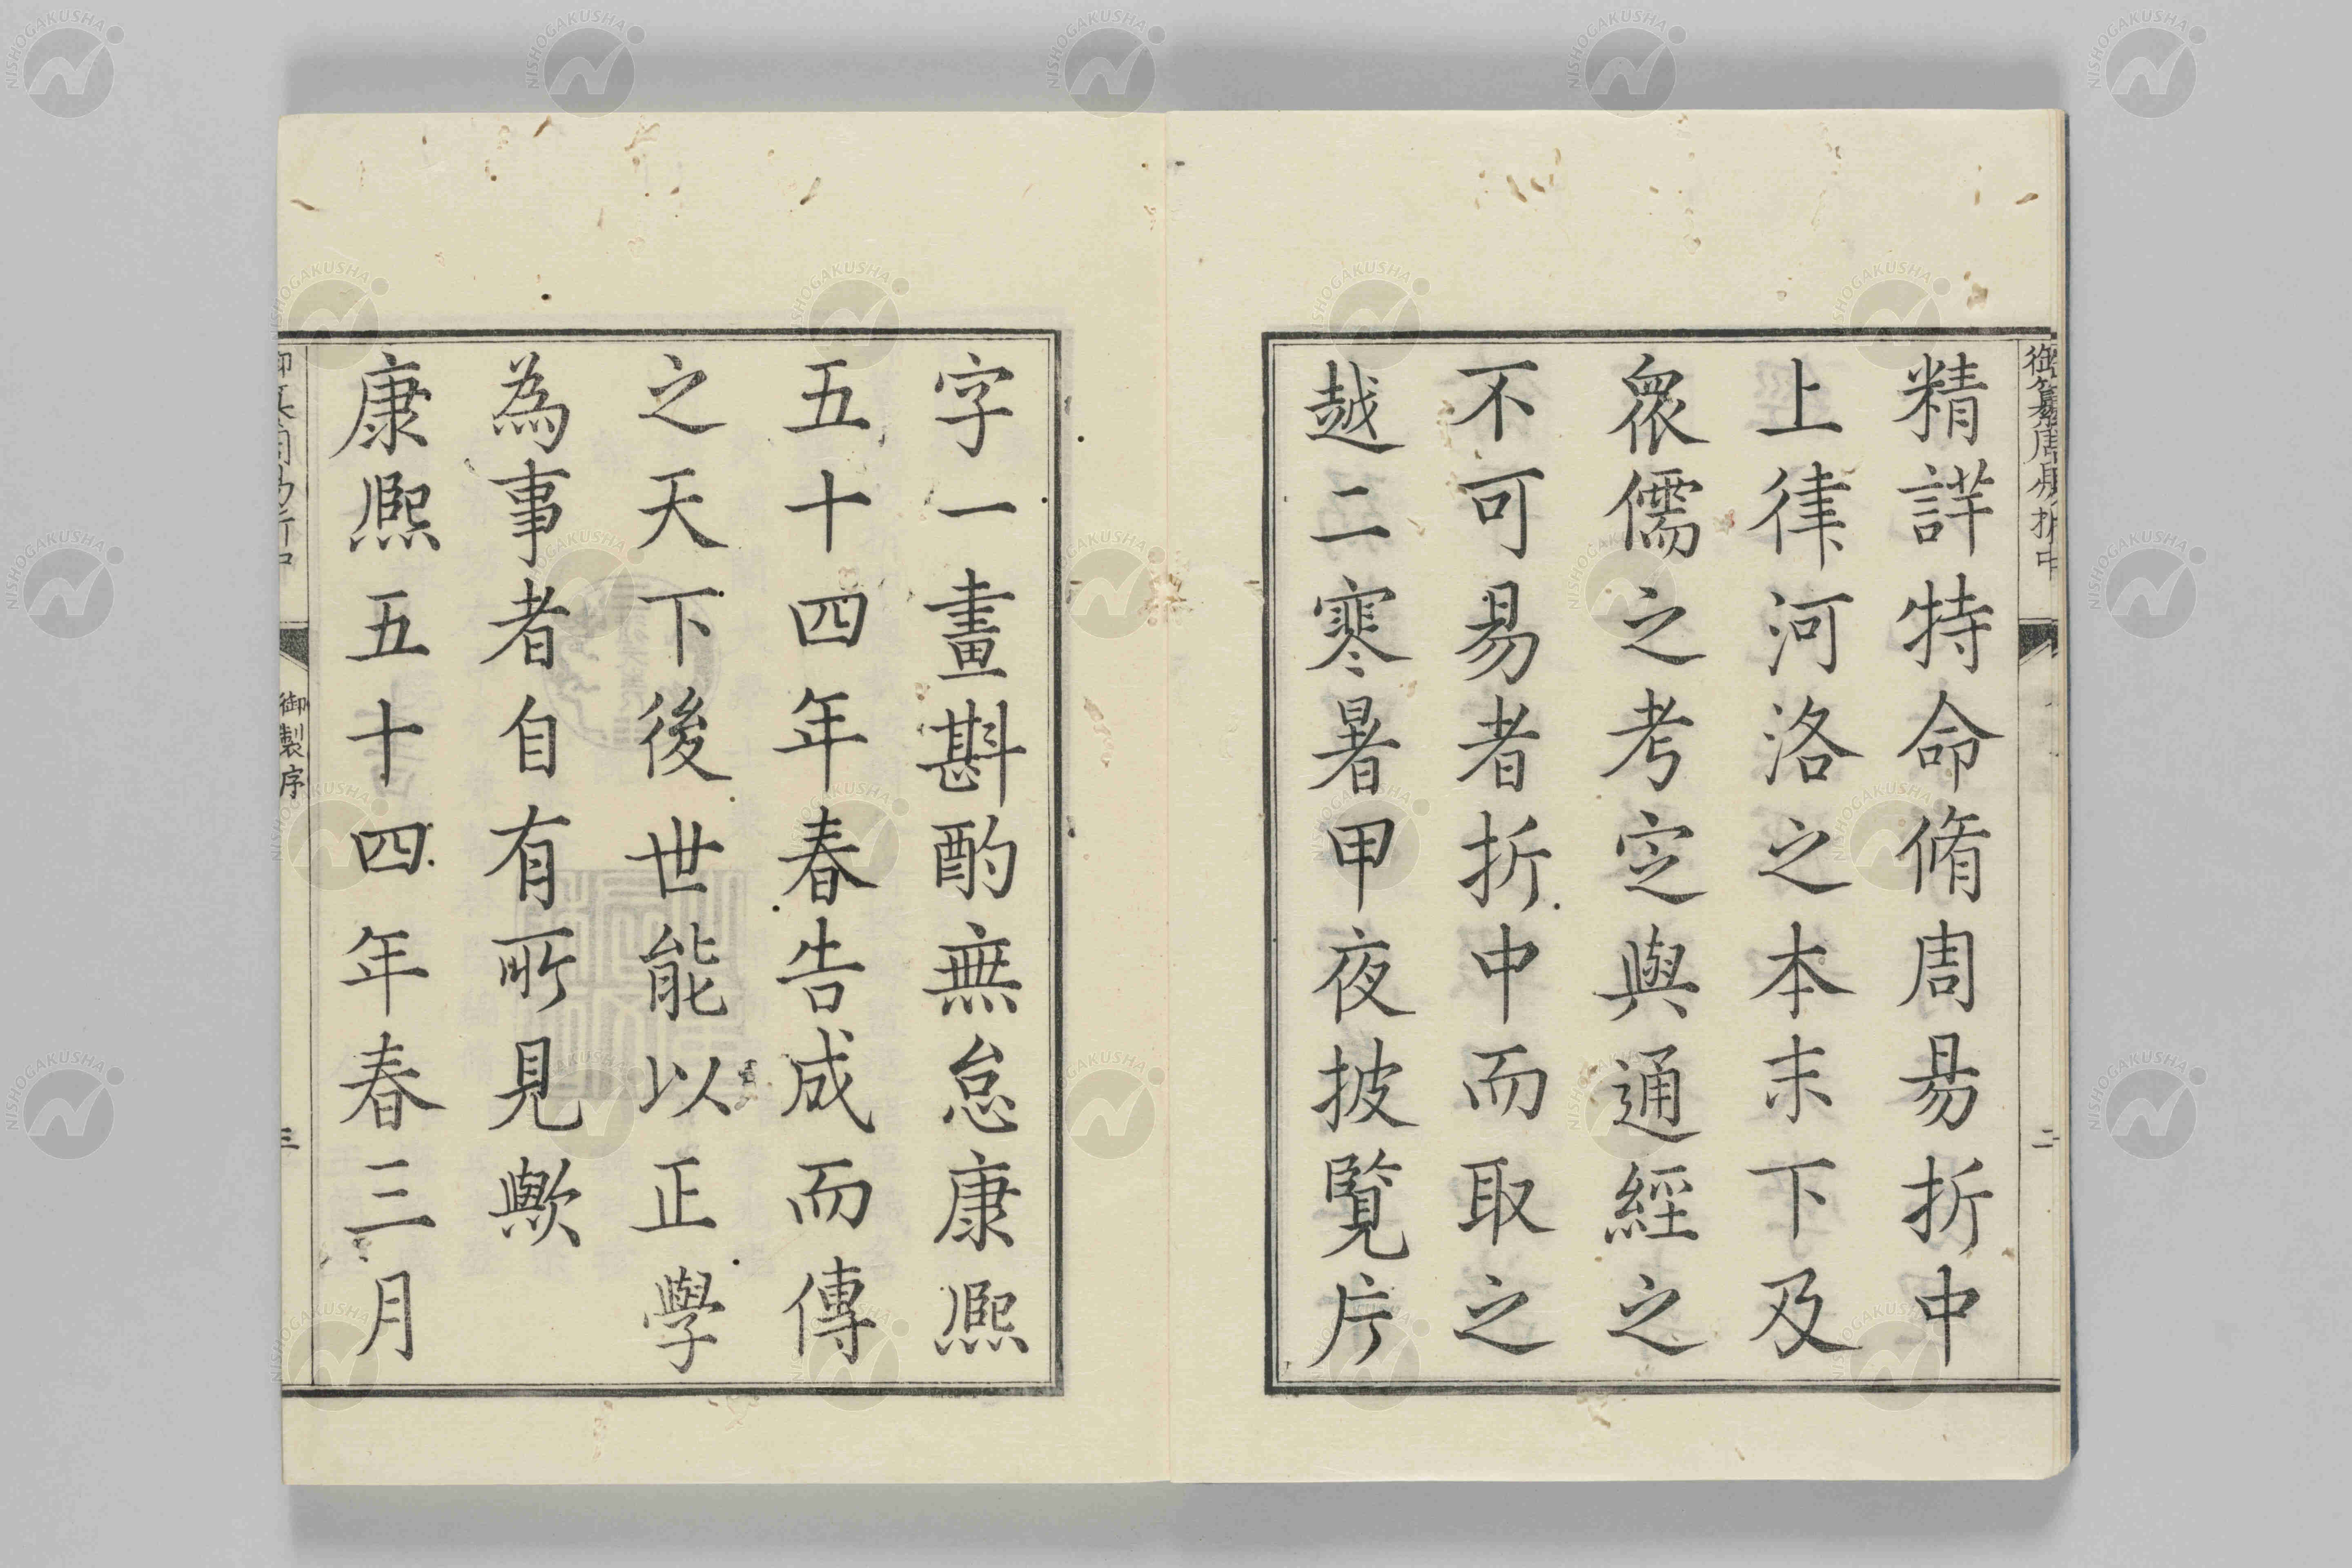 御纂周易折中
二
精詳特命脩周易折中
上律河洛之本末下及
衆儒之考定與通經之
不可易者折中而取之
越二寒暑甲夜披覧片
字一畫斟酌無怠康熙
五十四年春告成而傳
之天下後世能以正學
為事者自有所見歟
康熙五十四年春三月
御製序
三
NISHOGAKUSHA